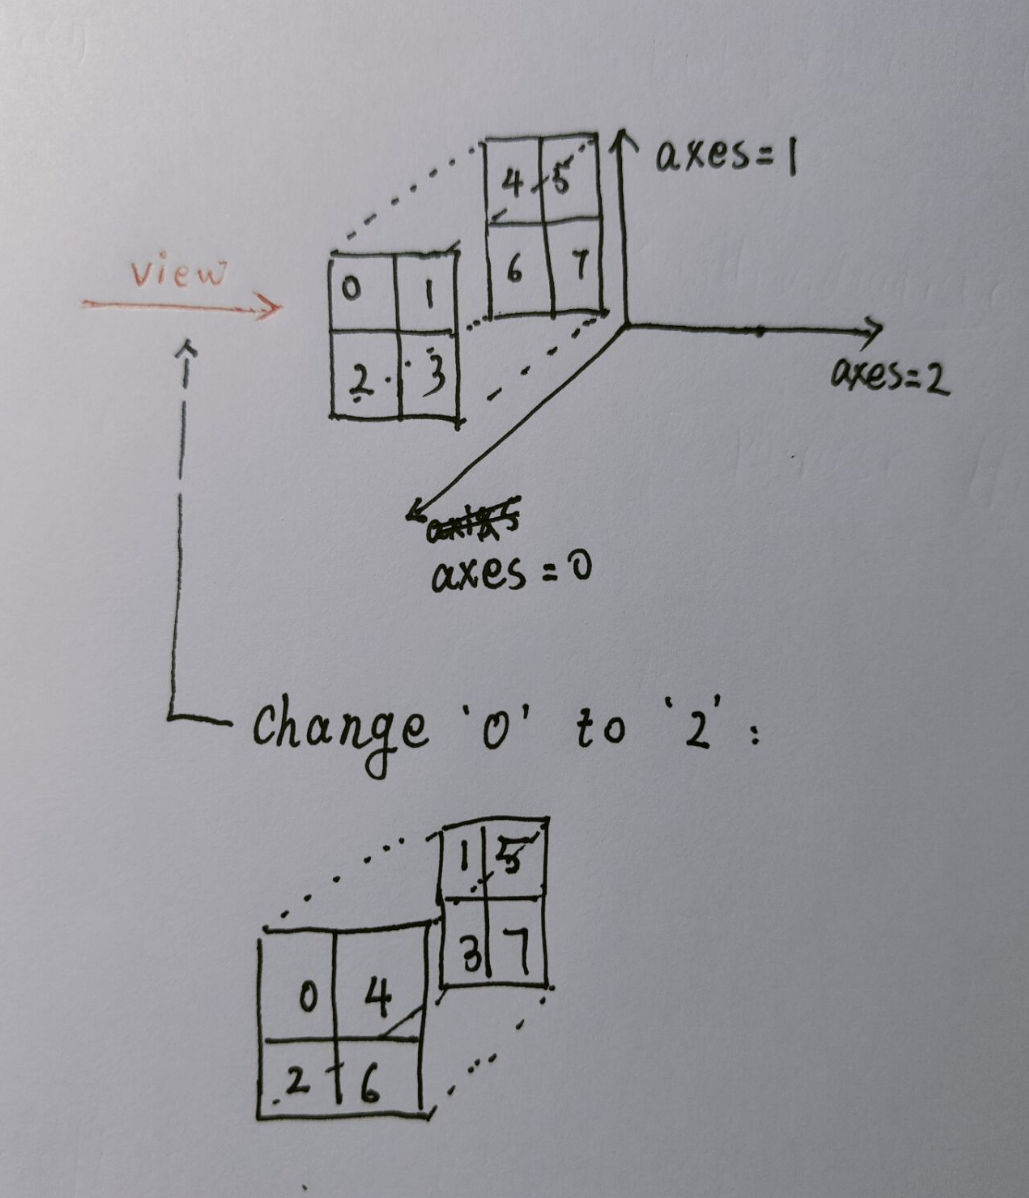 4 5
axes=1
view
0 1
6 7
2 3
axes=2
axes=0
Change '0' to '2':
1 5
3 7
0 4
2 6